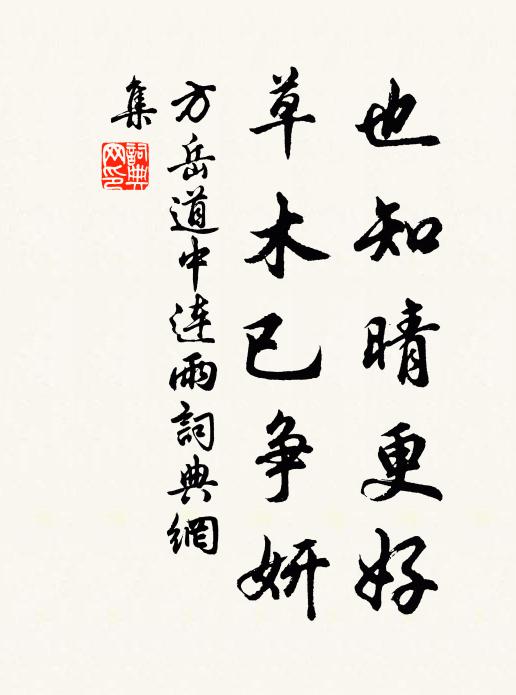 也知晴更好
草木已争妍
方岳道中连雨詞典網
集
詞典
网印